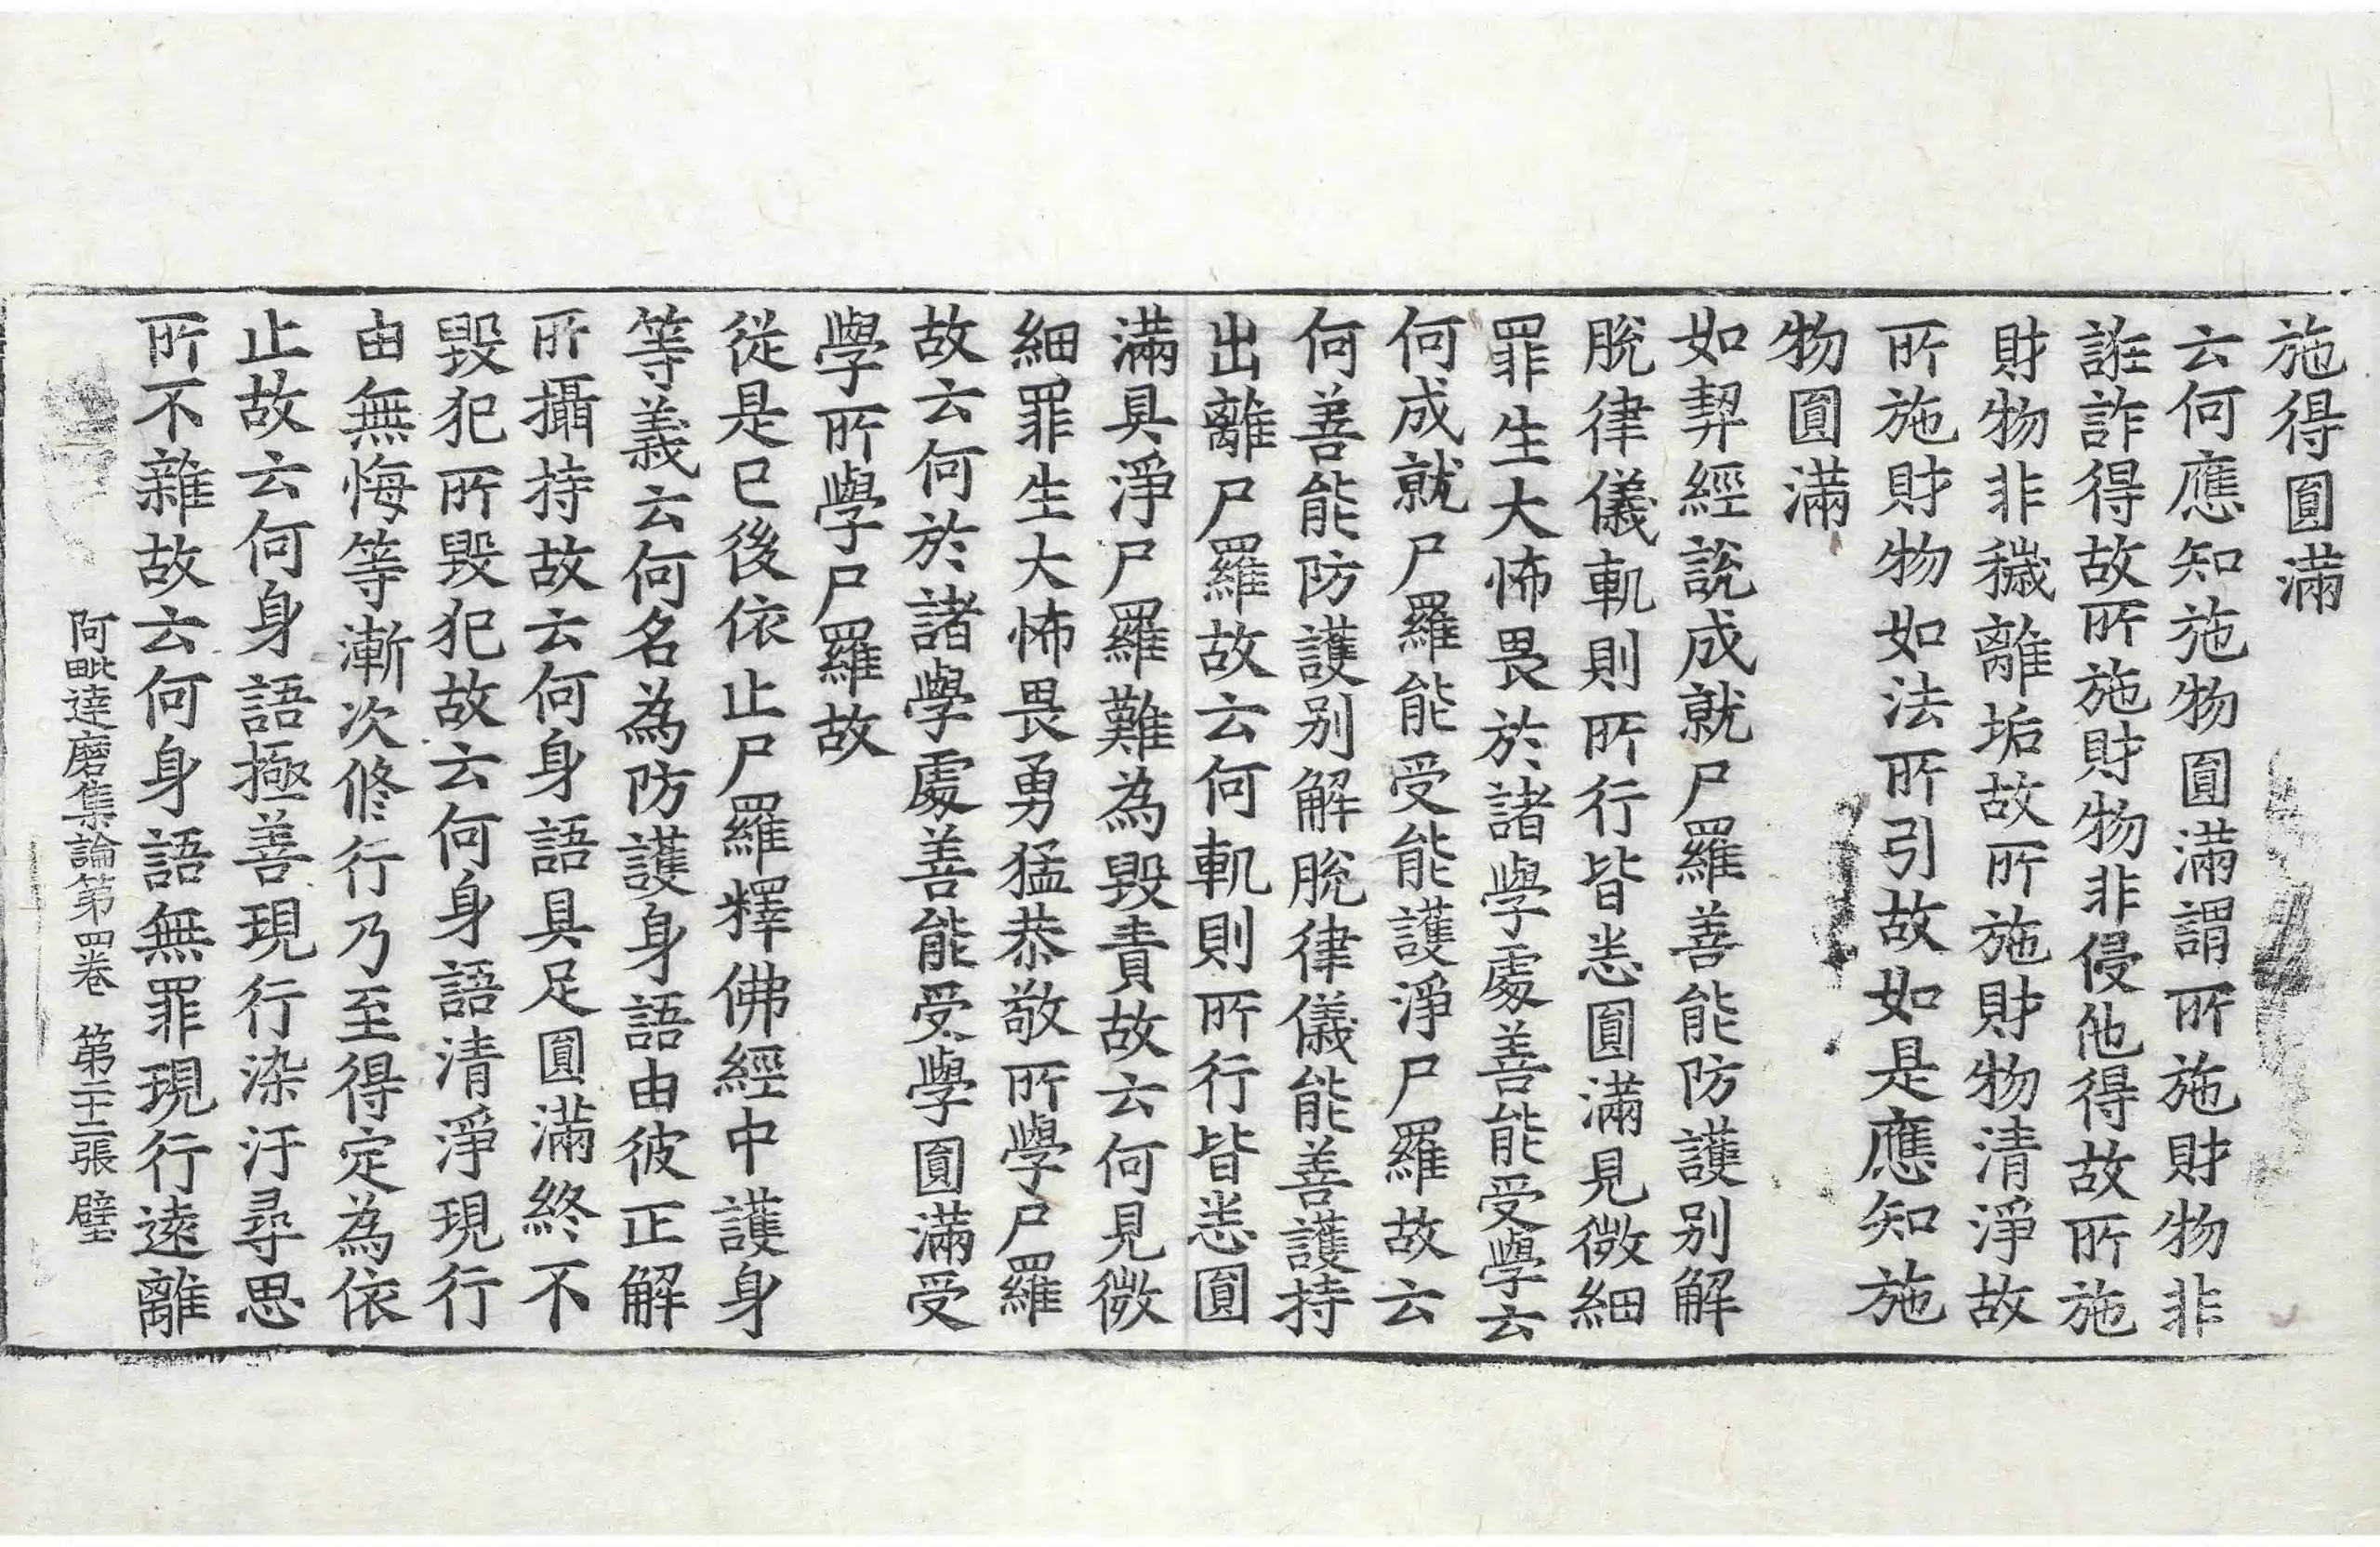 施得圓滿
云何應知施物圓滿謂所施財物非
誑詐得故所施財物非侵他得故所施
財物非穢離垢故所施財物清淨故
所施財物如法所引故如是應知施
物圓滿
如契經說成就尸羅善能防護別解
脫律儀軌則所行皆悉圓滿見微細
罪生大怖畏於諸學處善能受學云
何成就尸羅能受能護淨尸羅故云
何善能防護別解脫律儀能善護持
出離尸羅故云何軌則所行皆悉圓
滿具淨尸羅難為毀責故云何見微
細罪生大怖畏勇猛恭敬所學尸羅
故云何於諸學處善能受學圓滿受
學所學尸羅故
從是已後依止尸羅釋佛經中護身
等義云何名為防護身語由彼正解
所攝持故云何身語具足圓滿終不
毀犯所毀犯故云何身語清淨現行
由無悔等漸次修行乃至得定為依
止故云何身語極善現行染汙尋思
所不雜故云何身語無罪現行遠離
阿毗達磨集論第四卷 第二十二張 壁